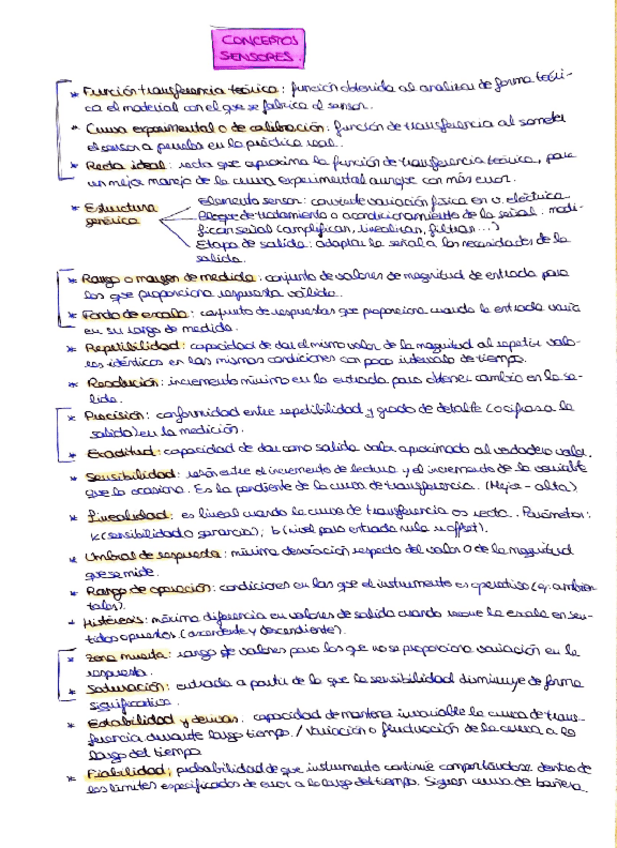 CONCEPTOS
SENSORES.
* Función transferencia teórica: función obtenida al analizar de forma teóri-
ca el material con el que se fabrica el sensor.
* Curva experimental o de calibración: función de transferencia al someter
el sensor a prueba en la práctica real.
* Recta ideal: recta que aproxima la función de transferencia teórica, para
un mejor manejo de la curva experimental aunque con más error.
* Estructura genérica
Elemento sensor: convierte variación física en v. eléctrica.
Bloque de tratamiento o acondicionamiento de la señal: modi-
fican señal (amplifican, linealizan, filtran...)
Etapa de salida: adaptar la señal a las necesidades de la
salida.
* Rango o margen de medida: conjunto de valores de magnitud de entrada para
los que proporciona respuesta válida.
* Fondo de escala: conjunto de respuestas que proporciona cuando la entrada varía
en su rango de medida.
* Repetibilidad: capacidad de dar el mismo valor de la magnitud al repetir valo-
res idénticos en las mismas condiciones con poco intervalo de tiempo.
* Resolución: incremento mínimo en la entrada para obtener cambio en la sa-
lida.
* Precisión: conformidad entre repetibilidad y grado de detalle (nº cifras a la
salida) en la medición.
* Exactitud: capacidad de dar como salida valor aproximado al verdadero valor.
* Sensibilidad: razón entre el incremento de lectura y el incremento de la variable
que lo ocasiona. Es la pendiente de la curva de transferencia. (Mejor - alta)
* Linealidad: es lineal cuando la curva de transferencia es recta. Parámetros:
k (sensibilidad o ganancia); b (nivel para entrada nula u offset).
* Umbral de respuesta: mínima desviación respecto del valor 0 de la magnitud
que se mide.
* Rango de operación: condiciones en las que el instrumento es operativo (ej: ambien-
tales).
* Histéresis: máxima diferencia en valores de salida cuando recorre la escala en sen-
tidos opuestos. (ascendente y descendiente).
* Zona muerta: rango de valores para los que no se proporciona variación en la
respuesta.
* Saturación: entrada a partir de la que la sensibilidad disminuye de forma
significativa.
* Estabilidad y derivas: capacidad de mantener invariable la curva de trans-
ferencia durante largo tiempo. / Variación o fluctuación de la curva a lo
largo del tiempo
* Fiabilidad: probabilidad de que instrumento continúe comportándose dentro de
los límites especificados de error a lo largo del tiempo. Siguen curva de bañera.